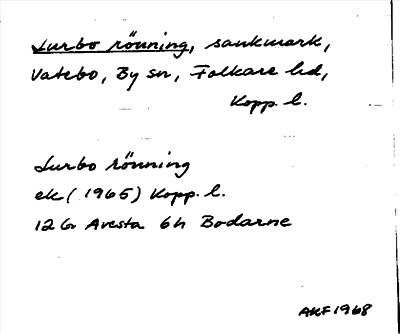 Lurbo rönning, sankmark,
Vatebo, By sn, Folkare hd,
Kopp. l.
Lurbo rönning
ek (1965) Kopp. l.
12 G Avesta 6h Bodarne
AKF 1968